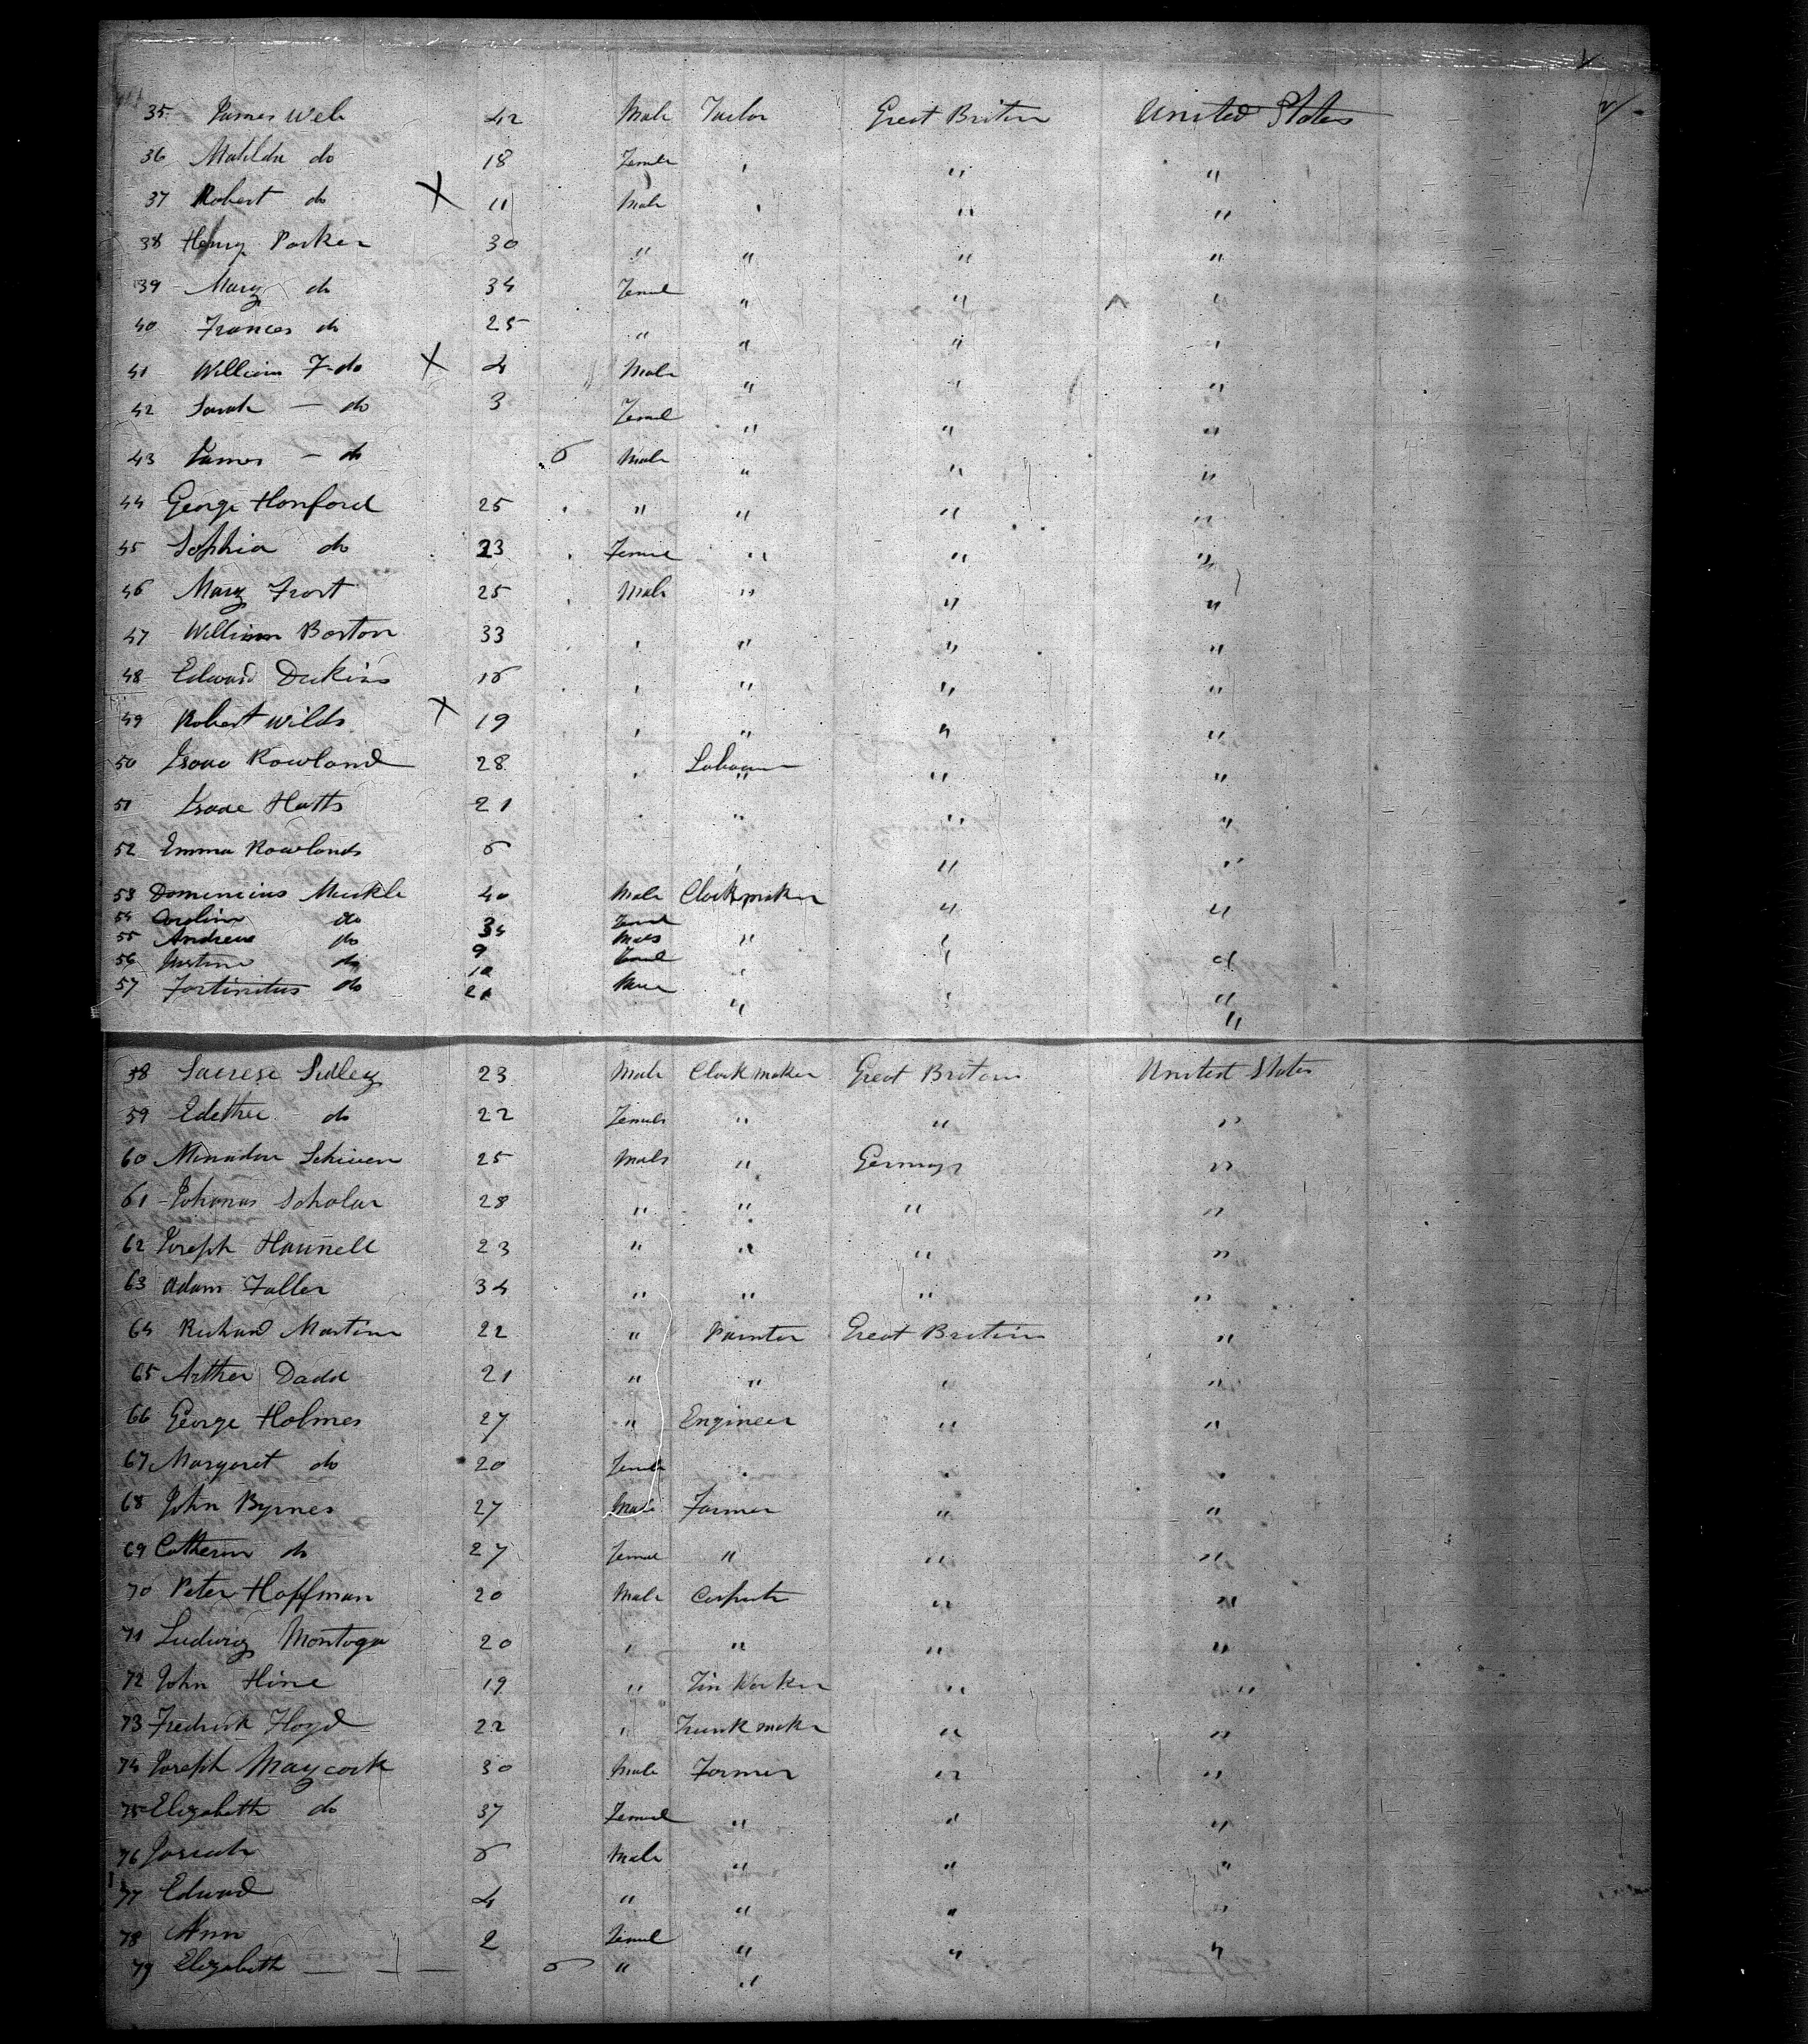 35 James Web 42 Male Tailor Great Britain United States
36 Matilda do 18 Female , " "
37 Robert do X 11 Male , " "
38 Henry Parker 30 " " " "
39 Mary do 34 Femal " " "
40 Frances do 25 " " " "
41 William F do X 4 Male " " "
42 Sarah — do 3 Femal " " "
43 James — do 6 Male " " "
44 George Honford 25 " " " "
45 Sophia do 23 Female " " "
46 Mary Frost 25 Male " " "
47 William Barton 33 , " " "
48 Edward Dekins 16 , " " "
49 Robert Wilds X 19 , " " "
50 Isaac Rowland 28 , " "
51 Isaac Hatts 21 . " " "
52 Emma Rowlands 6 , " "
53 Domenicus Muckle 40 Male Clockmaker " "
54 Caroline do 34 Femal
55 Andrew do 9 Male " " "
56 do 10 Femal " " "
57 do 21 " " "
58 23 Male Clockmaker Great Britain United States
59 do 22 Female " " "
60 25 Male " Germany "
61 Johanas Scholar 28 " " " "
62 Joseph Haunell 23 " " " "
63 Adam Faller 34 " " " "
64 Richard Martin 22 " Painter Great Britain "
65 Arther Dadd 21 " " " "
66 George Holmes 27 " Engineer " "
67 Margaret do 20 Female . . .
68 John Byrnes 27 Male Farmer " "
69 Catherin do 27 Femal " " "
70 Peter Hoffman 20 Male " "
71 Ludwig Montogu 20 , " " "
72 John Hine 19 " Tin Worker " "
73 Fredrick Floyd 22 , Trunk maker " "
74 Joseph Maycock 30 Male Farmer " "
75 Elizabeth do 37 Femal " " "
76 Josiah 6 Male " " "
77 Edward 4 " " " "
78 Ann 2 Femal " " "
79 Elizabeth — — — 6 " "